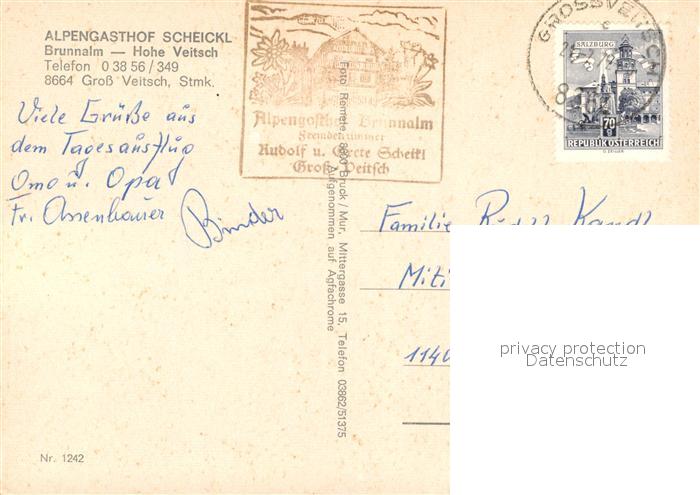 ALPENGASTHOF SCHEICKL
Brunnalm — Hohe Veitsch
Telefon 0 38 56 / 349
8664 Groß Veitsch, Stmk.
Viele Grüße aus
dem Tagesausflug
Oma u. Opa
Fr. Assenbauer
Binder
Alpengasthof Brunnalm
Fremdenzimmer
Rudolf u. Grete Scheikl
Groß Veitsch
Foto Remete, 8600 Bruck / Mur, Mittergasse 15, Telefon 03862/51375
Aufgenommen auf Agfachrome
GROSSVEITSCH
SALZBURG
70 g
REPUBLIK ÖSTERREICH
Familie Rudolf Kandl
Miti
1140
privacy protection
Datenschutz
Nr. 1242